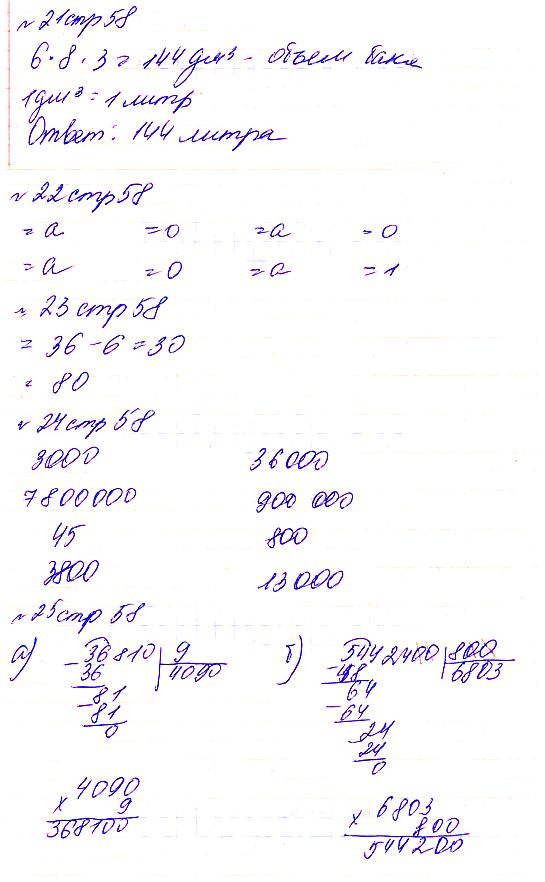 № 21 стр 58
6·8·3 = 144 дм³ - объем бака
1 дм³ = 1 литр
Ответ: 144 литра
№ 22 стр 58
= а = 0 = а = 0
= а = 0 = а = 1
№ 23 стр 58
= 36 - 6 = 30
= 80
№ 24 стр 58
3000 36000
7800000 900 000
45 800
3800 13000
№ 25 стр 58
а) 36810 | 9 б) 5442400 | 800
- 36 4090 - 48 6803
81 64
- 81 - 64
0 24
- 24
0
4090 6803
× 9 × 800
368100 544200